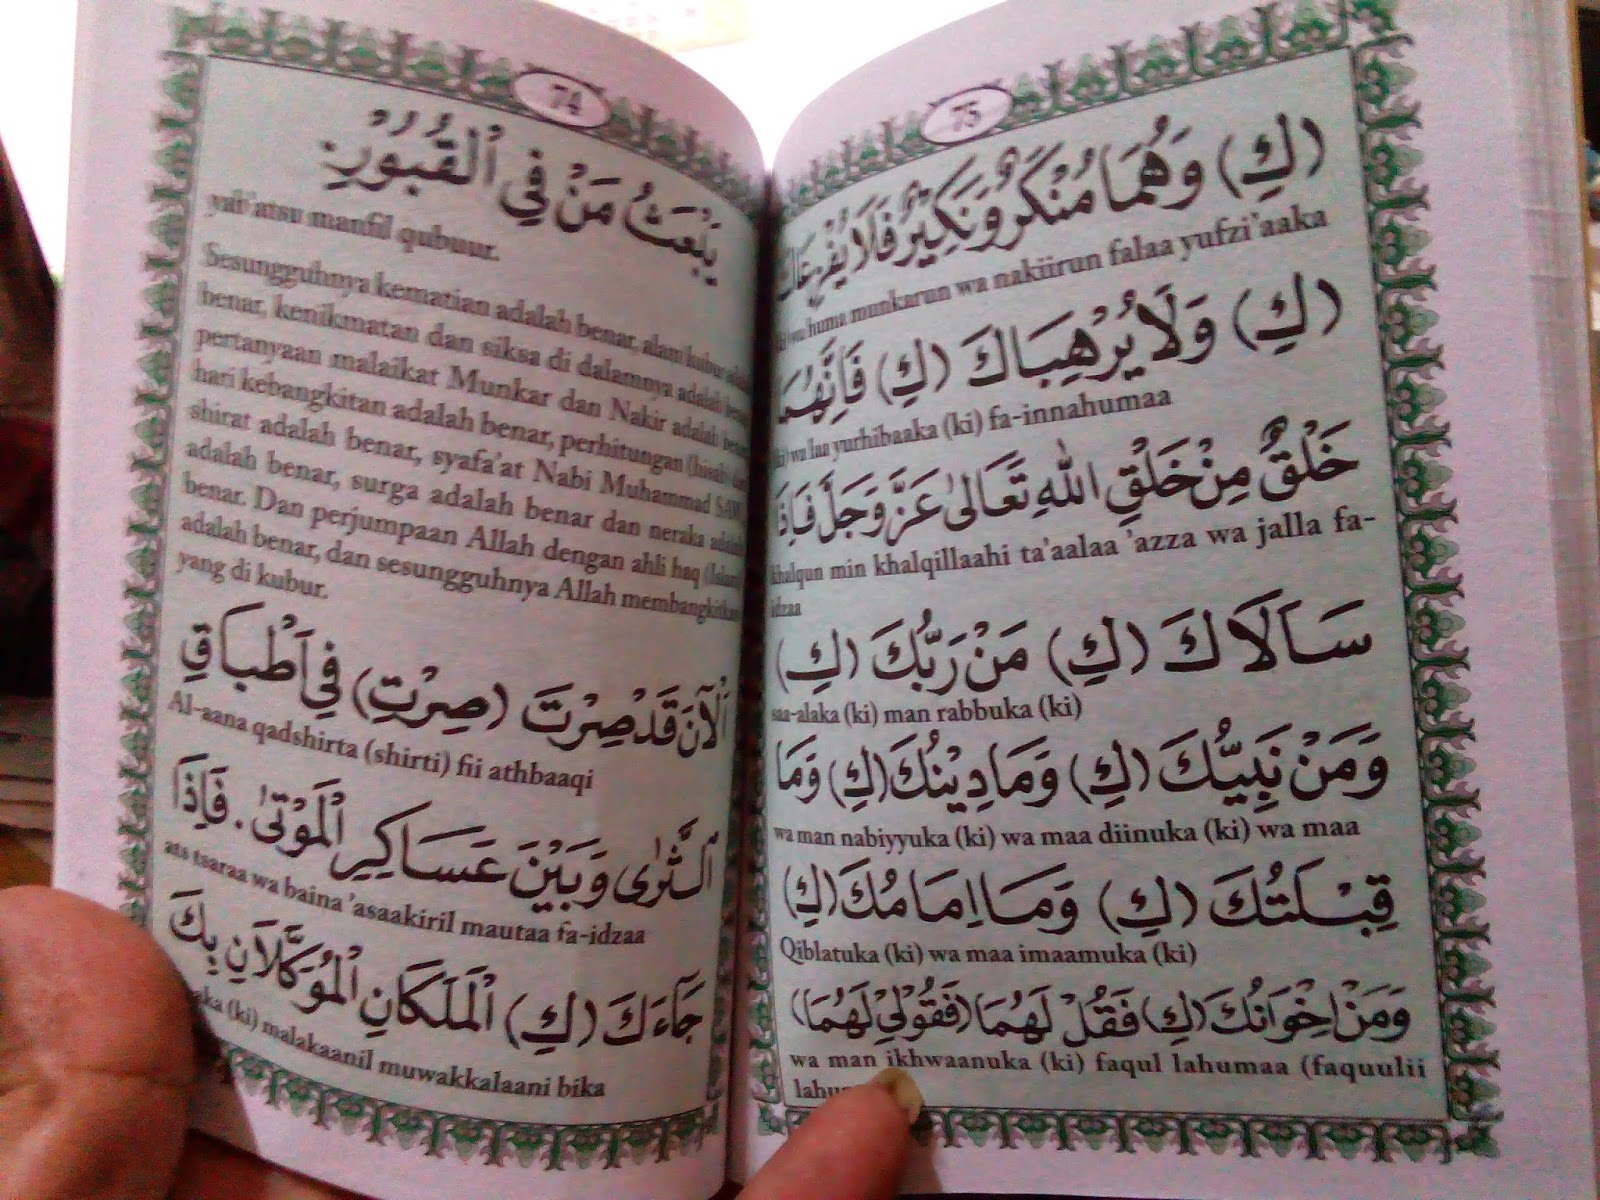 74
يَبْعَثُ مَنْ فِي الْقُبُوْرِ.
yab'atsu manfil qubuur.
Sesungguhnya kematian adalah benar, alam kubur
benar, kenikmatan dan siksa di dalamnya adalah
pertanyaan malaikat Munkar dan Nakir adalah
hari kebangkitan adalah benar, perhitungan (hisab)
shirat adalah benar, syafa'at Nabi Muhammad SAW
adalah benar, surga adalah benar dan neraka
benar. Dan perjumpaan Allah dengan ahli haq
adalah benar, dan sesungguhnya Allah membangkitkan
yang di kubur.
اَلْآنَ قَدْ صِرْتَ (صِرْتِ) فِي اَطْبَاقِ
Al-aana qadshirta (shirti) fii athbaaqi
الثَّرٰى وَبَيْنَ عَسَاكِيرِ الْمَوْتٰى. فَاِذَا
ats tsaraa wa baina 'asaakiril mautaa fa-idzaa
جَآءَكَ (كِ) الْمَلَكَانِ الْمُوَكَّلَانِ بِكَ
(ki) malakaanil muwakkalaani bika
75
(كِ) وَهُمَا مُنْكَرٌ وَنَكِيْرٌ فَلَا يُفْزِعَاكَ
wa huma munkarun wa nakiirun falaa yufzi'aaka
(كِ) وَلَا يُرْهِبَاكَ (كِ) فَاِنَّهُمَا
wa laa yurhibaaka (ki) fa-innahumaa
خَلْقٌ مِنْ خَلْقِ اللهِ تَعَالٰى عَزَّ وَجَلَّ فَاِذَا
khalqun min khalqillaahi ta'aalaa 'azza wa jalla fa-
idzaa
سَاَلَاكَ (كِ) مَنْ رَبُّكَ (كِ)
saa-alaka (ki) man rabbuka (ki)
وَمَنْ نَبِيُّكَ (كِ) وَمَا دِيْنُكَ (كِ) وَمَا
wa man nabiyyuka (ki) wa maa diinuka (ki) wa maa
قِبْلَتُكَ (كِ) وَمَا اِمَامُكَ (كِ)
Qiblatuka (ki) wa maa imaamuka (ki)
وَمَنْ اِخْوَانُكَ (كِ) فَقُلْ لَهُمَا (فَقُوْلِيْ لَهُمَا)
wa man ikhwaanuka (ki) faqul lahumaa (faquulii